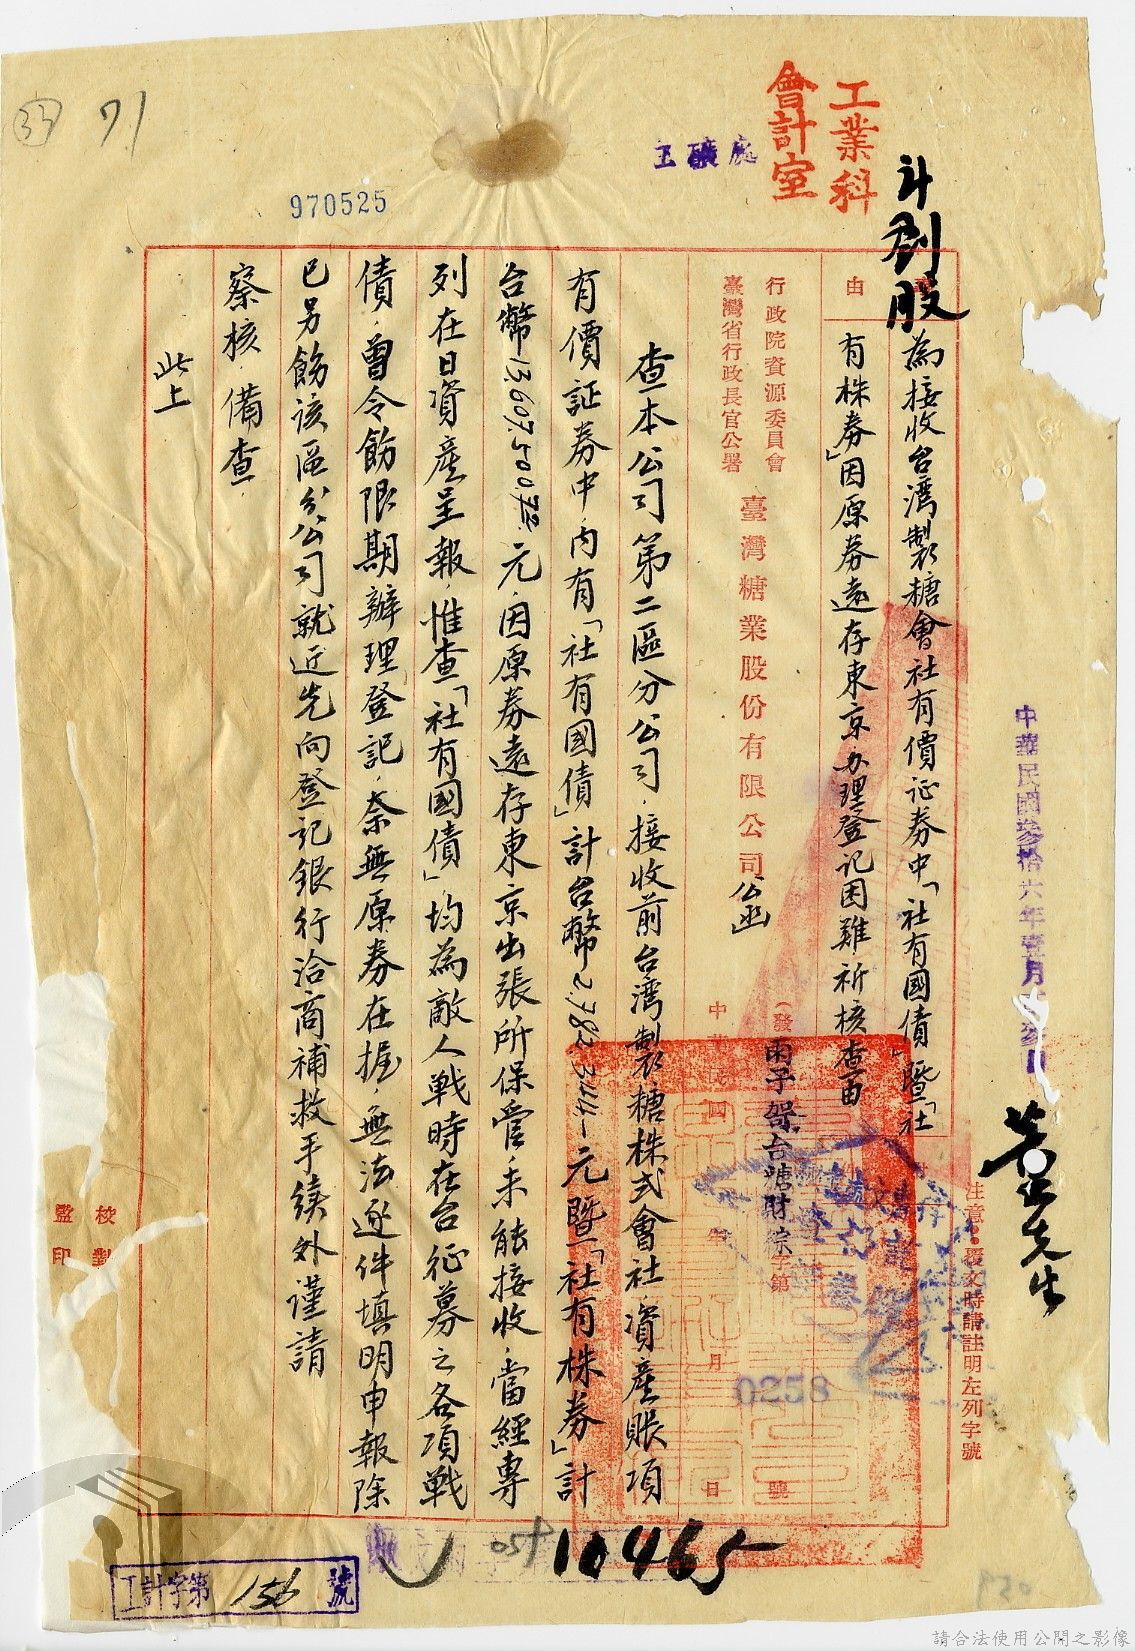 工業科
會計室
工礦處
33
71
970525
計劃股
由
為接收台湾製糖會社有價证券中「社有國債」暨「社
有株券」因原券遠存東京办理登记困難祈核查由
注意：覆文時請註明左列字號
中華民國參拾六年壹月
先生
行政院資源委員會
臺灣省行政長官公署
臺灣糖業股份有限公司公函
(發
台糖財綜字第
0258
號
中華民國 年 月 日
查本公司第二區分公司，接收前台湾製糖株式會社，資產賬項
有價証券中，內有「社有國債」計台幣2,782,344-元暨「社有株券」計
台幣13,607,500元，因原券遠存東京出張所保管未能接收，當經專
列在日資產呈報，惟查「社有國債」均為敵人戰時在台征募之各項戰
債，曾令飭限期辦理登記，奈無原券在握，無法逐件填明申報除
已另飭該區分公司就近先向登記銀行洽商補救手續外謹請
察核，備查，
此上
校對
監印
10465
工計字第156號
請合法使用公開之影像